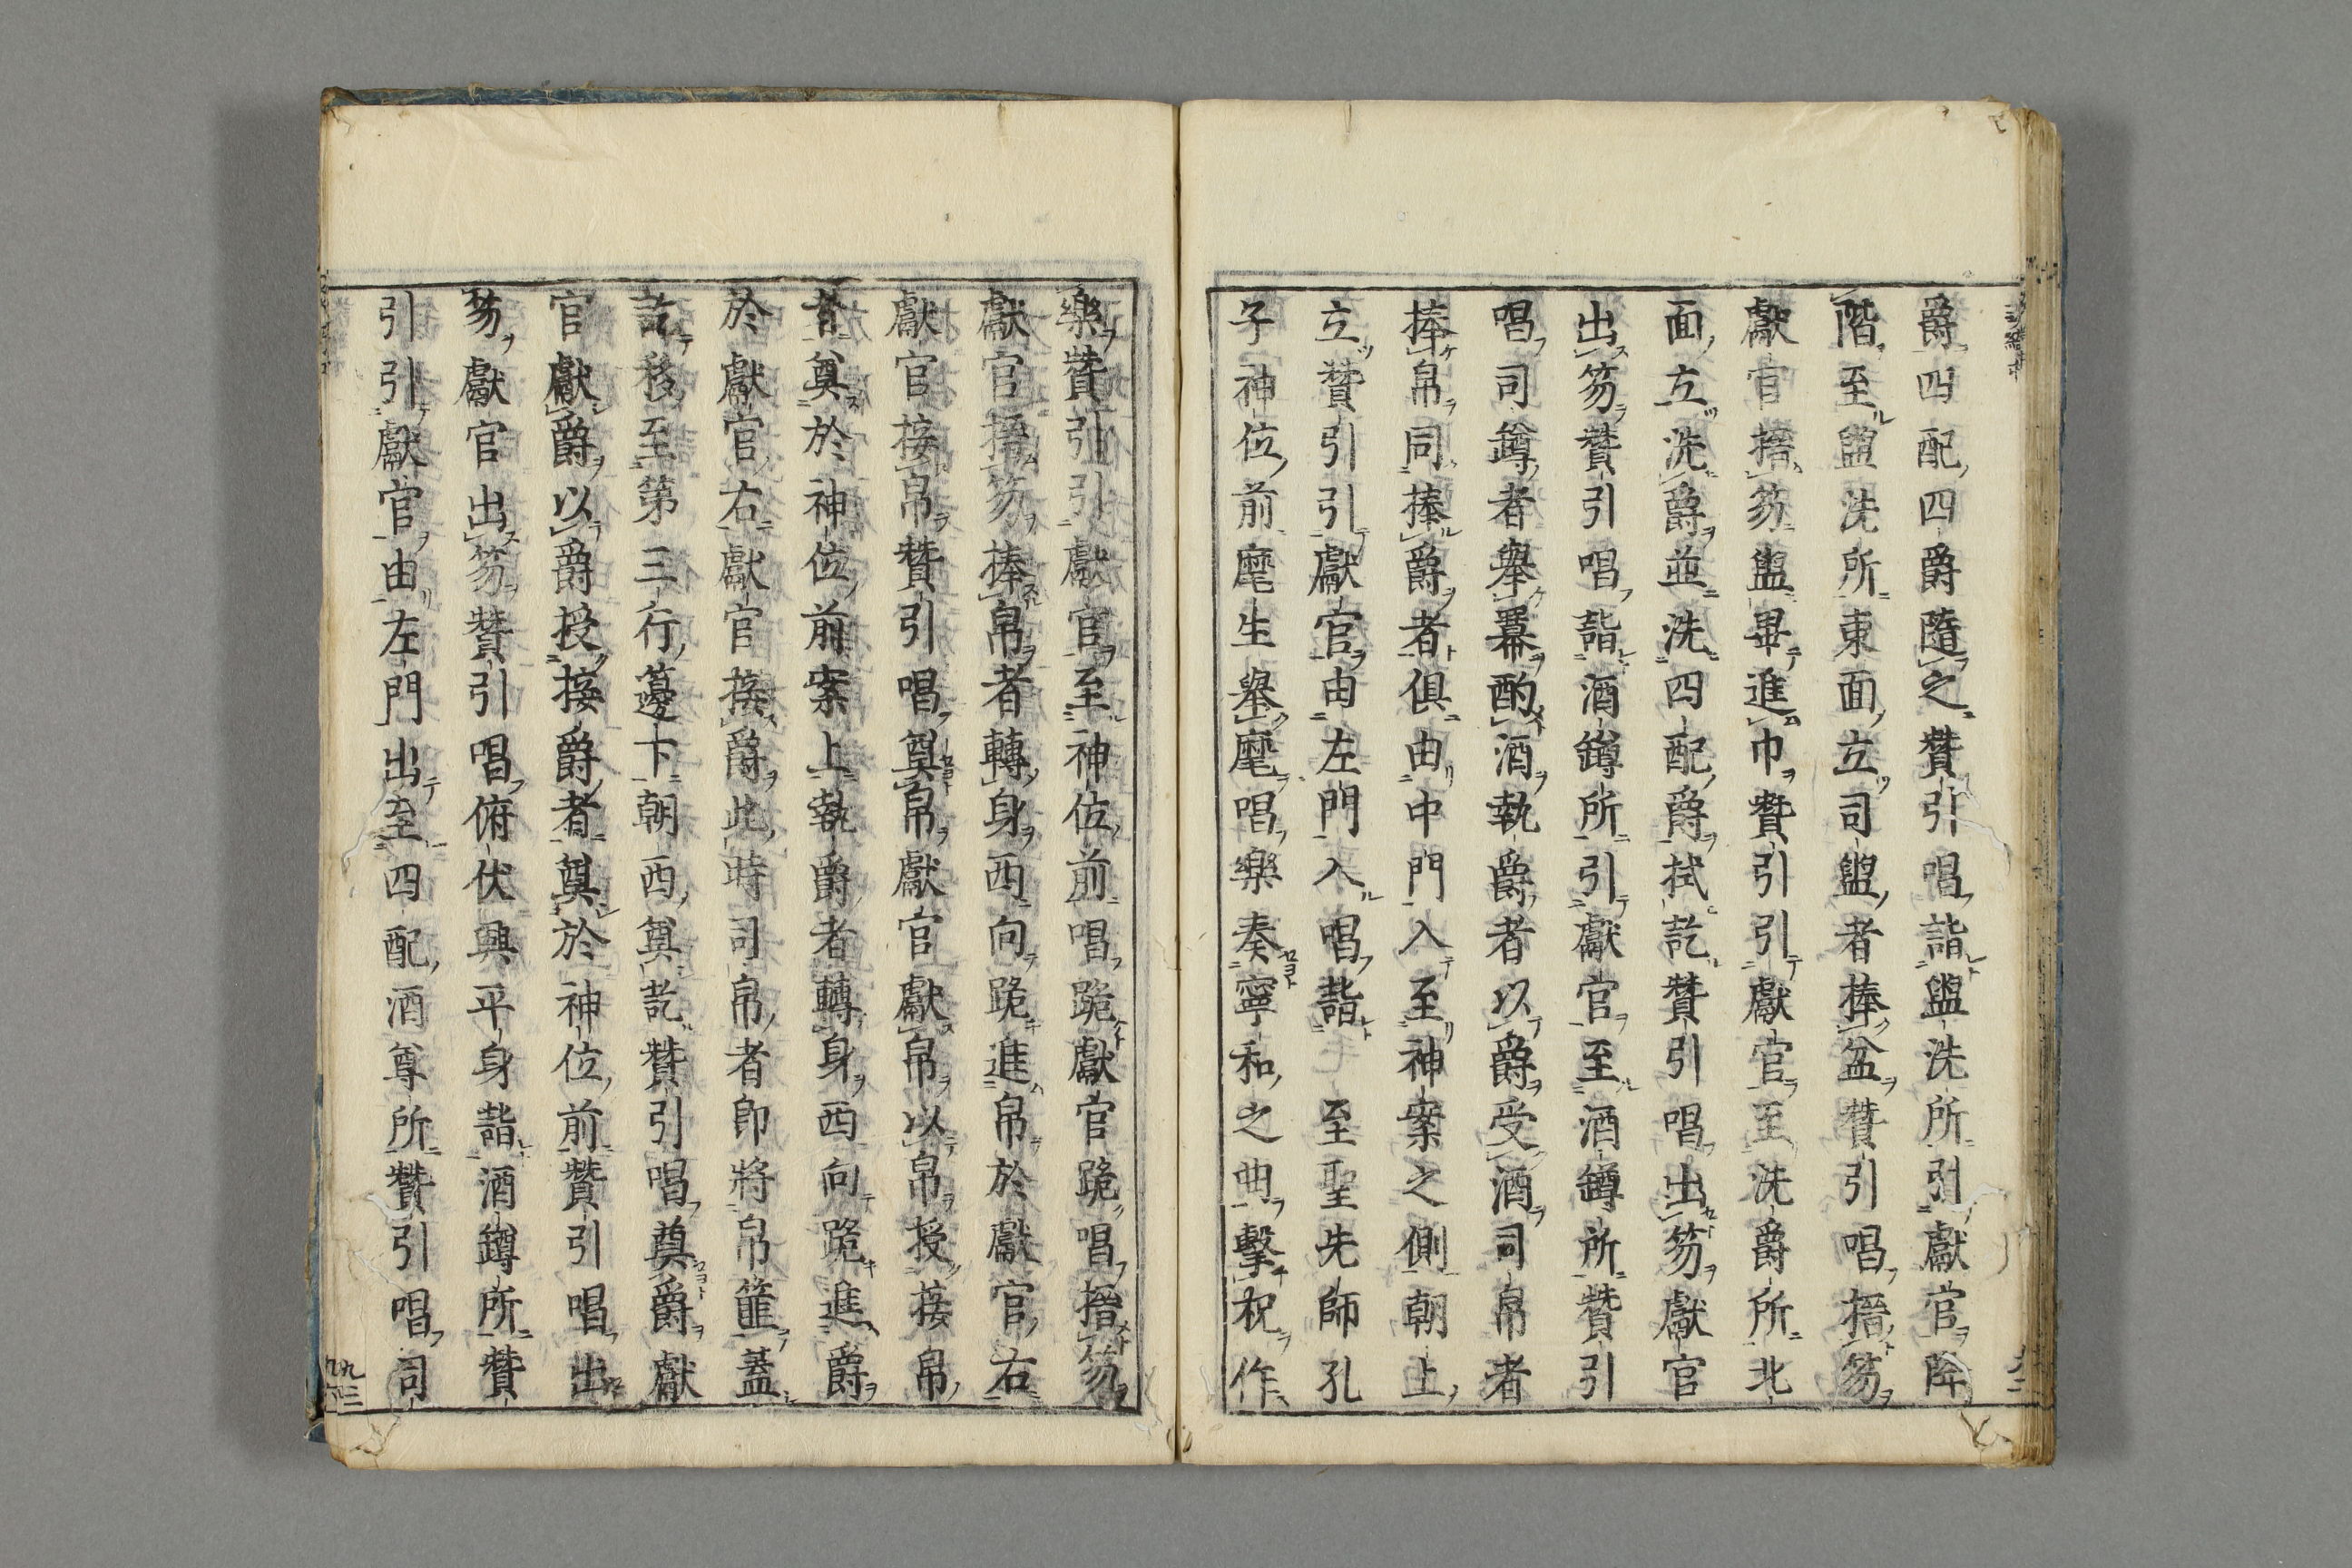 爵四配四爵隨之贊引唱詣盥洗所引獻官降
階至盥洗所東面立司盥者捧盆贊引唱搢笏
獻官搢笏盥畢進巾贊引引獻官至洗爵所北
面立洗爵並洗四配爵拭訖贊引唱出笏獻官
出笏贊引唱詣酒罇所引獻官至酒罇所贊引
唱司罇者舉羃酌酒執爵者以爵受酒司帛者
捧帛同捧爵者俱由中門入至神案之側朝上
立贊引引獻官由左門入唱詣至聖先師孔
子神位前麾生舉麾唱樂奏寧和之曲擊柷作
樂贊引引獻官至神位前唱跪獻官跪唱搢笏
獻官搢笏捧帛者轉身西向跪進帛於獻官右
獻官接帛贊引唱奠帛獻官獻帛以帛授接帛
者奠於神位前案上執爵者轉身西向跪進爵
於獻官右獻官接爵此時司帛者即將帛篚蓋
訖移至第三行籩下朝西奠訖贊引唱奠爵獻
官獻爵以爵授接爵者奠於神位前贊引唱出
笏獻官出笏贊引唱俯伏興平身詣酒罇所贊
引引獻官由左門出至四配酒尊所贊引唱司